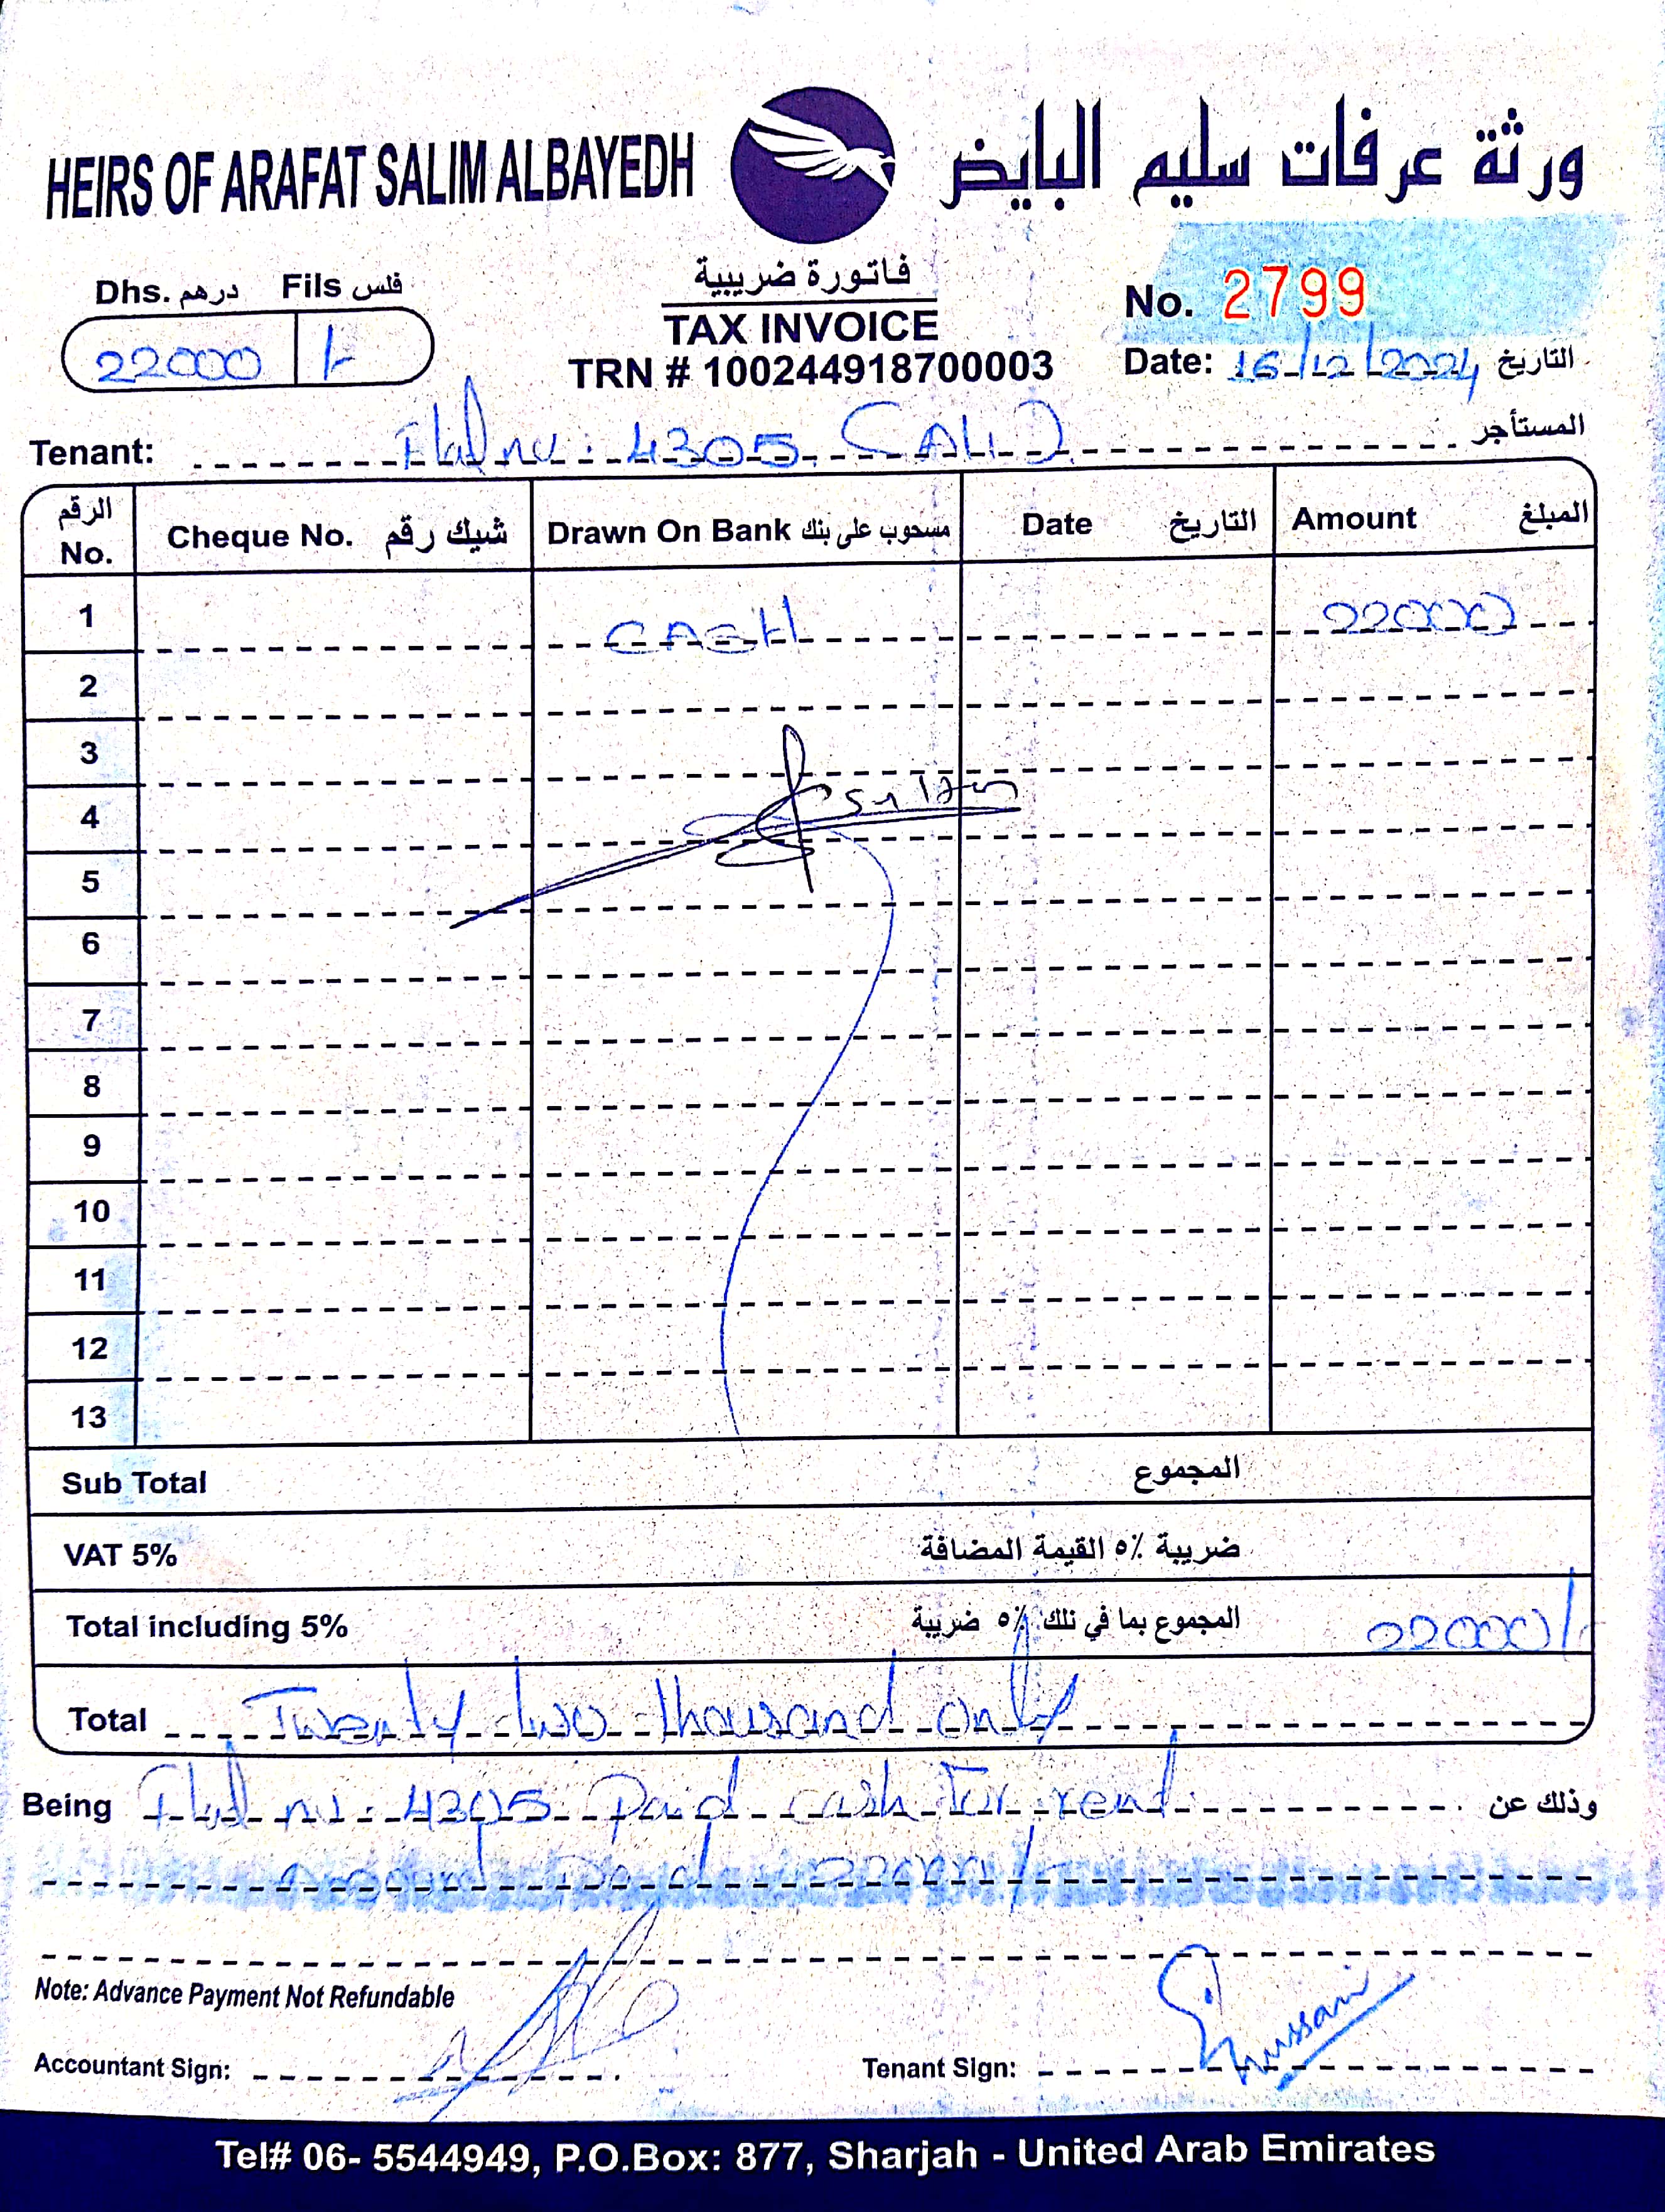 HEIRS OF ARAFAT SALIM ALBAYEDH ورثة عرفات سليم البايض
Dhs. درهم Fils فلس
22000
فاتورة ضريبية
TAX INVOICE
TRN # 100244918700003
No. 2799
Date: 16/12/2024 التاريخ
Tenant: Flat no: 4305 (ALI) المستأجر
الرقم No. Cheque No. شيك رقم Drawn On Bank مسحوب على بنك Date التاريخ Amount المبلغ
1 CASH 22000
2
3
4 Sultan
5
6
7
8
9
10
11
12
13
Sub Total المجموع
VAT 5% ضريبة ٥٪ القيمة المضافة
Total including 5% المجموع بما في ذلك ٥٪ ضريبة 22000/
Total Twenty two thousand only
Being Flat no. 4305 Paid cash for rent وذلك عن
Paid 22000/-
Note: Advance Payment Not Refundable
Accountant Sign:
Tenant Sign: Hussain
Tel# 06- 5544949, P.O.Box: 877, Sharjah - United Arab Emirates